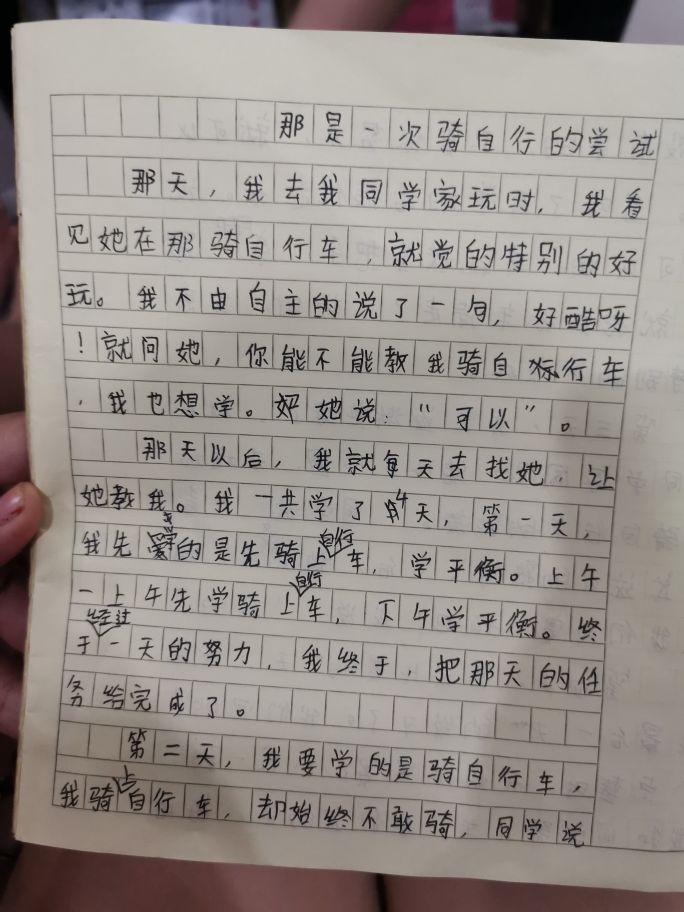 那是一次骑自行的尝试
那天，我去我同学家玩时，我看
见她在那骑自行车，就觉的特别的好
玩。我不由自主的说了一句，好酷呀
！就问她，你能不能教我骑自行车
，我也想学。她说：“可以”。
那天以后，我就每天去找她，让
她教我。我一共学了4天，第一天，
我先学的是先骑上自行车，学平衡。上午
一上午先学骑上自行车，下午学平衡。终
于经过一天的努力，我终于，把那天的任
务给完成了。
第二天，我要学的是骑自行车，
我骑上自行车，却始终不敢骑，同学说